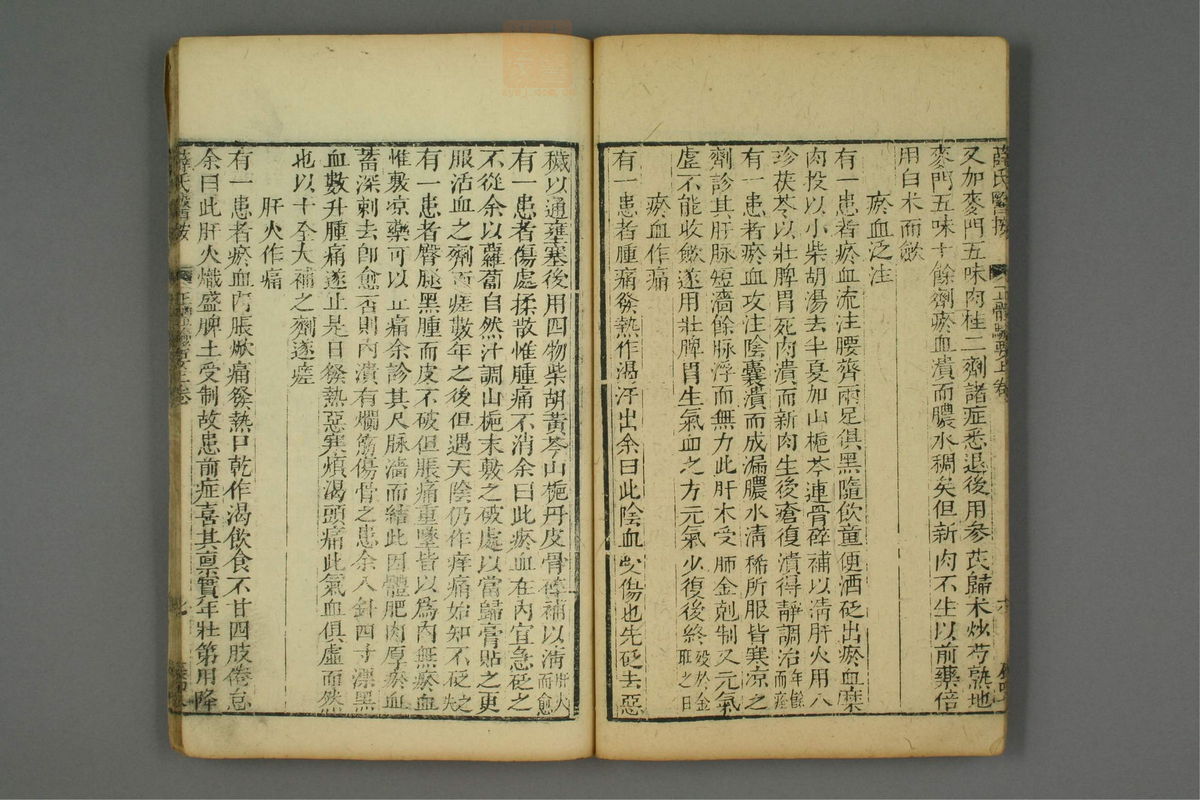 薛氏醫按 正體類要上卷 六
又加麥門五味肉桂二劑諸症悉退後用參芪歸朮炒芍熟地
麥門五味十餘劑瘀血潰而膿水稠矣但新肉不生以前藥倍
用白朮而斂
瘀血泛注
有一患者瘀血流注腰臍兩足俱黑隨飲童便酒砭出瘀血糜
肉投以小柴胡湯去半夏加山梔芩連骨碎補以清肝火用八
珍茯苓以壯脾胃死肉潰而新肉生後瘡復潰得靜調治年餘而痊
有一患者瘀血攻注陰囊潰而成漏膿水清稀所服皆寒凉之
劑診其肝脉短濇餘脉浮而無力此肝木受肺金剋制又元氣
虛不能收斂遂用壯脾胃生氣血之方元氣少復後終歿於金旺之日
瘀血作痛
有一患者腫痛發熱作渴汗出余曰此陰血受傷也先砭去惡
穢以通壅塞後用四物柴胡黃芩山梔丹皮骨碎補以清肝火而愈
有一患者傷處揉散惟腫痛不消余曰此瘀血在內宜急砭之
不從余以蘿蔔自然汁調山梔末敷之破處以當歸膏貼之更
服活血之劑而瘥數年之後但遇天陰仍作痒痛始知不砭之失
有一患者臀腿黑腫而皮不破但脹痛重墜皆以爲內無瘀血
惟敷凉藥可以止痛余診其尺脉濇而結此因體肥肉厚瘀血
蓄深刺去卽愈否則內潰有爛筋傷骨之患余入針四寸漂黑
血數升腫痛遂止是日發熱惡寒煩渴頭痛此氣血俱虛而然
也以十全大補之劑遂瘥
肝火作痛
有一患者瘀血內脹焮痛發熱口乾作渴飲食不甘四肢倦怠
余曰此肝火熾盛脾土受制故患前症喜其禀實年壯第用降
薛氏醫按 正體類要上卷